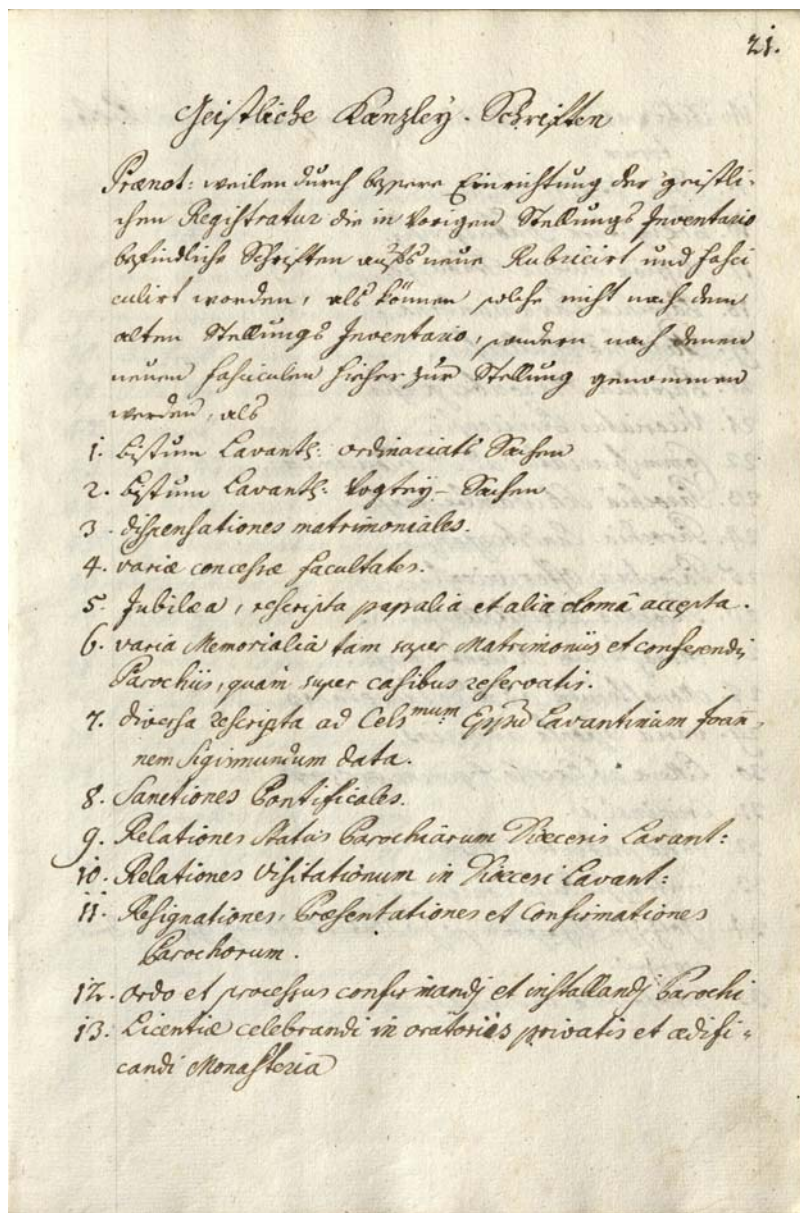 21.
Geistliche Kanzley-Schriften
Prænot: weilen durch bessere Einrichtung der geistli-
chen Registratur die in vorigen Stellungs Inventario
befindliche Schriften aufs neue Rubricirt und fasci
culirt worden, als können solche nicht nach dem
alten Stellungs Inventario, sondern nach denen
neuen fasciculen hieher zur Stellung genommen
werden, als
1. Bistum Lavant: ordinariats Sachen
2. Bistum Lavant: Vogtey-Sachen
3. dispensationes matrimoniales.
4. variæ concessæ facultates.
5. Jubilæa, rescripta papalia et alia Româ accepta.
6. varia Memorialia tam super Matrimoniis et conferendis
Parochiis, quam super casibus reservatis.
7. diversa rescripta ad Cels mum Eppũ Lavantinum Joan̄-
nem Sigismundum data.
8. Sanctiones Pontificales.
9. Relationes status Parochiarum Diæcesis Lavant:
10. Relationes visitationum in Diæcesi Lavant:
11. Resignationes, Præsentationes et Confirmationes
Parochorum.
12. ordo et processus confirmandj et installandj Parochi
13. Licentiæ celebrandi in oratoriis privatis et ædifi=
candi Monasteria